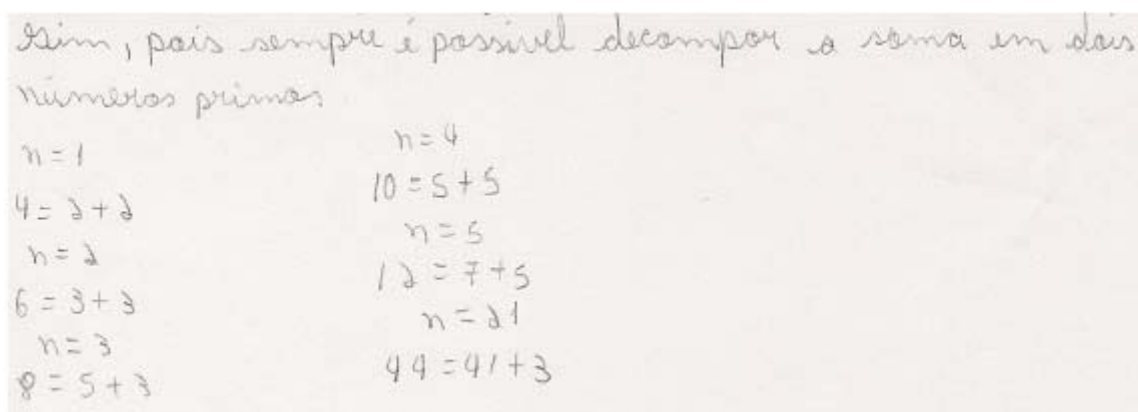 Sim, pois sempre é possível decompor a soma em dois
números primos
n = 1
4 = 2 + 2
n = 2
6 = 3 + 3
n = 3
8 = 5 + 3
n = 4
10 = 5 + 5
n = 5
12 = 7 + 5
n = 21
44 = 41 + 3